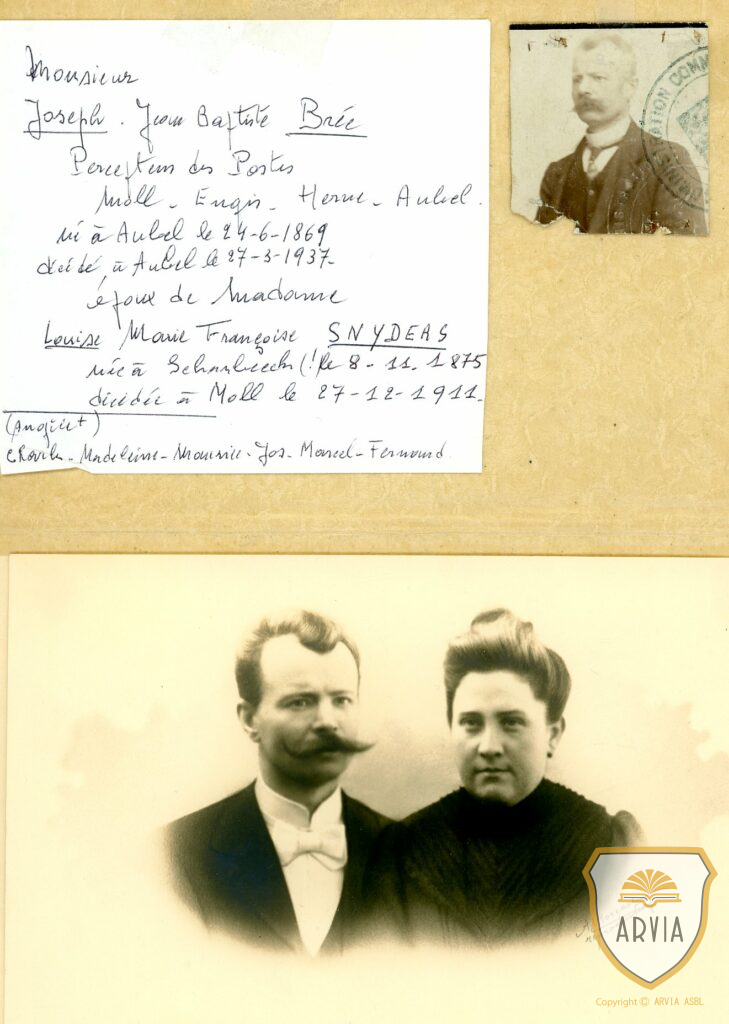 Monsieur
Joseph. Jean Baptiste Brée
Percepteur des Postes
Moll - Engis - Herve - Aubel.
né à Aubel le 24-6-1869
décédé à Aubel le 27-3-1937.
époux de Madame
Louise Marie Françoise SNYDERS
née à Schaerbeeck (! le 8-11-1875
décédée à Moll le 27-12-1911.
Madeleine - Maurice - Jos - Marcel - Fernand.
ARVIA
Copyright © ARVIA ASBL